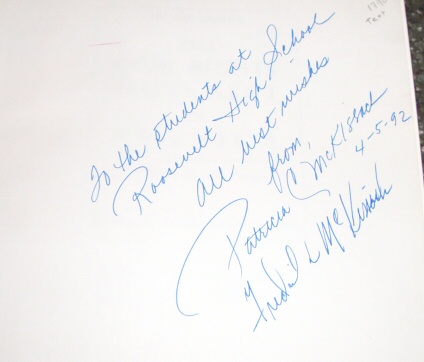 To the students at
Roosevelt High School
all best wishes
from,
Patricia C McKissack
4-5-92
Fredrick L McKissack